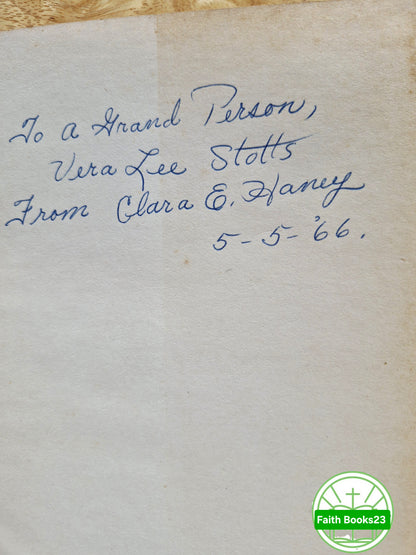 To a Grand Person,
Vera Lee Stotts
From Clara E. Haney
5-5-'66.
Faith Books23